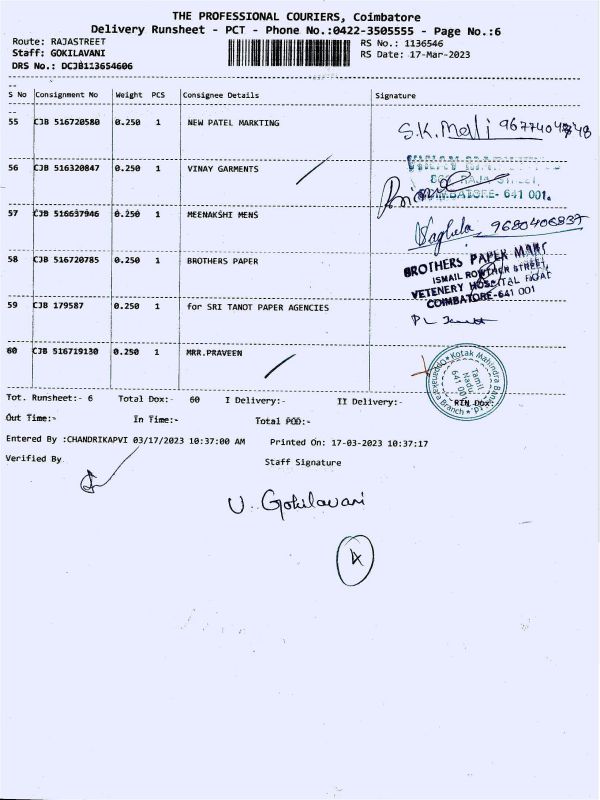 THE PROFESSIONAL COURIERS, Coimbatore
Delivery Runsheet - PCT - Phone No.:0422-3505555 - Page No.:6
Route: RAJASTREET RS No.: 1136546
Staff: GOKILAVANI RS Date: 17-Mar-2023
DRS No.: DCJB113654606
S No Consignment No Weight PCS Consignee Details Signature
55 CJB 516720580 0.250 1 NEW PATEL MARKTING
S.K. 
56 CJB 516320847 0.250 1 VINAY GARMENTS
COIMBATORE- 641 001.
57 CJB 516637946 0.250 1 MEENAKSHI MENS
Vaghela 9680406837
58 CJB 516720785 0.250 1 BROTHERS PAPER
BROTHERS PAPER MART
ISMAIL ROWTHER STREET,
VETENERY HOSPITAL ROAD
COIMBATORE-641 001
59 CJB 179587 0.250 1 for SRI TANOT PAPER AGENCIES
60 CJB 516719130 0.250 1 MRR.PRAVEEN
Kotak Mahindra Bank Ltd.
Oppanakara Branch
Tamil
Nadu
641 001
Tot. Runsheet:- 6 Total Dox:- 60 I Delivery:- II Delivery:- RTN Dox:
Out Time:- In Time:- Total POD:-
Entered By :CHANDRIKAPVI 03/17/2023 10:37:00 AM Printed On: 17-03-2023 10:37:17
Verified By Staff Signature
V. Gokilavani